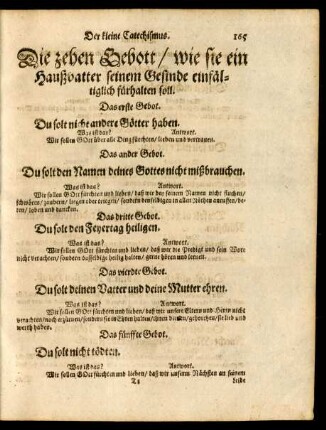 Der kleine Catechismus. 165
Die zehen Gebott / wie sie ein
Haußvatter seinem Gesinde einfäl-
tiglich fürhalten soll.
Das erste Gebot.
Du solt nicht andere Götter haben.
Was ist das? Antwort.
Wir sollen GOtt über alle Ding fürchten / lieben und vertrauen.
Das ander Gebot.
Du solt den Namen deines Gottes nicht mißbrauchen.
Was ist das? Antwort.
Wir sollen GOtt fürchten und lieben / daß wir bey seinem Namen nicht fluchen /
schwöhren / zaubern / liegen oder triegen / sondern denselbigen in allen Nöthen anruffen / be-
ten / loben und dancken.
Das dritte Gebot.
Du solt den Feyertag heiligen.
Was ist das? Antwort.
Wir sollen GOtt fürchten und lieben / daß wir die Predigt und sein Wort
nicht verachten / sondern dasselbige heilig halten / gerne hören und lernen.
Das vierdte Gebot.
Du solt deinen Vatter und deine Mutter ehren.
Was ist das? Antwort.
Wir sollen GOtt fürchten und lieben / daß wir unsere Eltern und Herrn nicht
verachten / noch erzürnen / sondern sie in Ehren halten / ihnen dienen / gehorchen / sie lieb und
werth haben.
Das fünffte Gebot.
Du solt nicht tödten.
Was ist das? Antwort.
Wir sollen GOtt fürchten und lieben / daß wir unserm Nächsten an seinem
Leibe